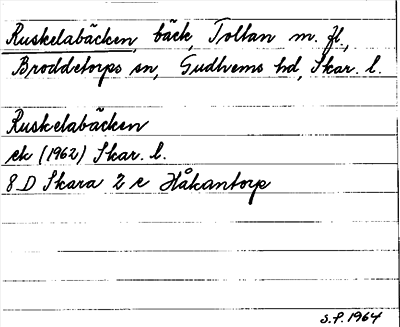 Ruskelabäcken, bäck, Toltan m. fl.,
Broddetorps sn, Gudhems hd, Skar. l.
Ruskelabäcken
ek (1962) Skar. l.
8 D Skara 2 e Håkantorp
S.P. 1964